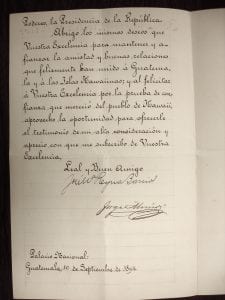 Poder en la Presidencia de la República.
Abrigo los mismos deseos que
Vuestra Excelencia para mantener y a-
fianzar la amistad y buenas relaciones
que felizmente han unido á Guatema-
la y á las Islas Hawaiinas; y al felicitar
á Vuestra Excelencia por la prueba de con-
fianza que mereció del pueblo de Hawaii,
aprovecho la oportunidad para ofrecerle
el testimonio de mi alta consideración y
aprecio con que me suscribo de Vuestra
Excelencia,
Leal y Buen Amigo
José Mª Reyna Barrios
Jorge Muñoz
Palacio Nacional:
Guatemala, 10 de Septiembre de 1894.